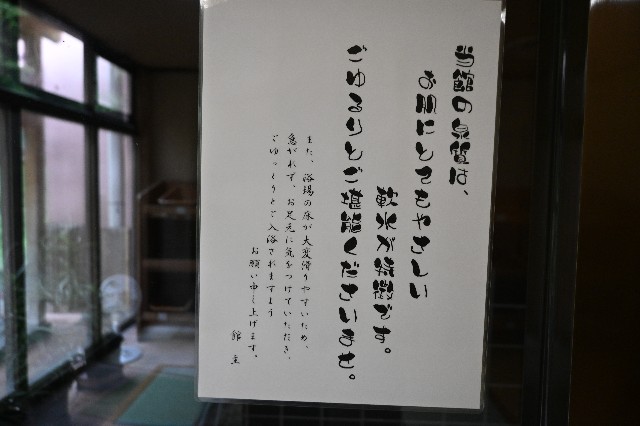 当館の泉質は、
お肌にとてもやさしい
軟水が特徴です。
ごゆるりとご堪能くださいませ。
また、浴場の床が大変滑りやすいため、
急がれず、お足元に気をつけていただき、
ごゆっくりとご入浴されますよう
お願い申し上げます。
館主